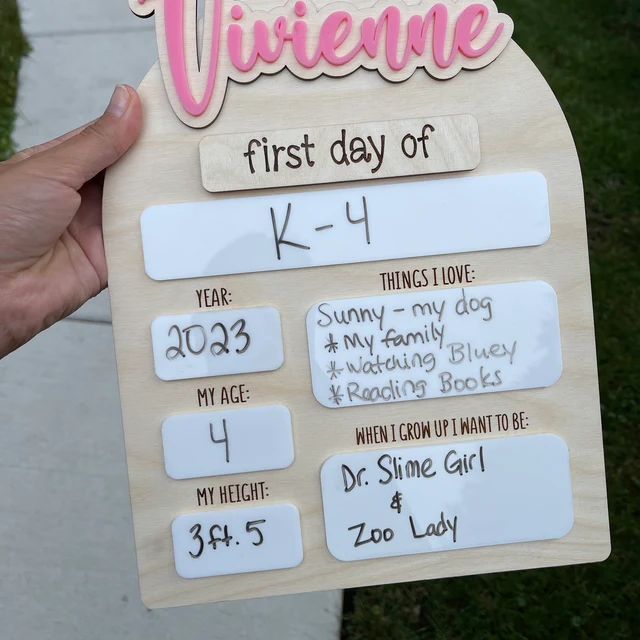 Vivienne
first day of
K-4
YEAR:
2023
MY AGE:
4
MY HEIGHT:
3ft. 5
THINGS I LOVE:
Sunny - my dog
* My family
* Watching Bluey
* Reading Books
WHEN I GROW UP I WANT TO BE:
Dr. Slime Girl
&
Zoo Lady